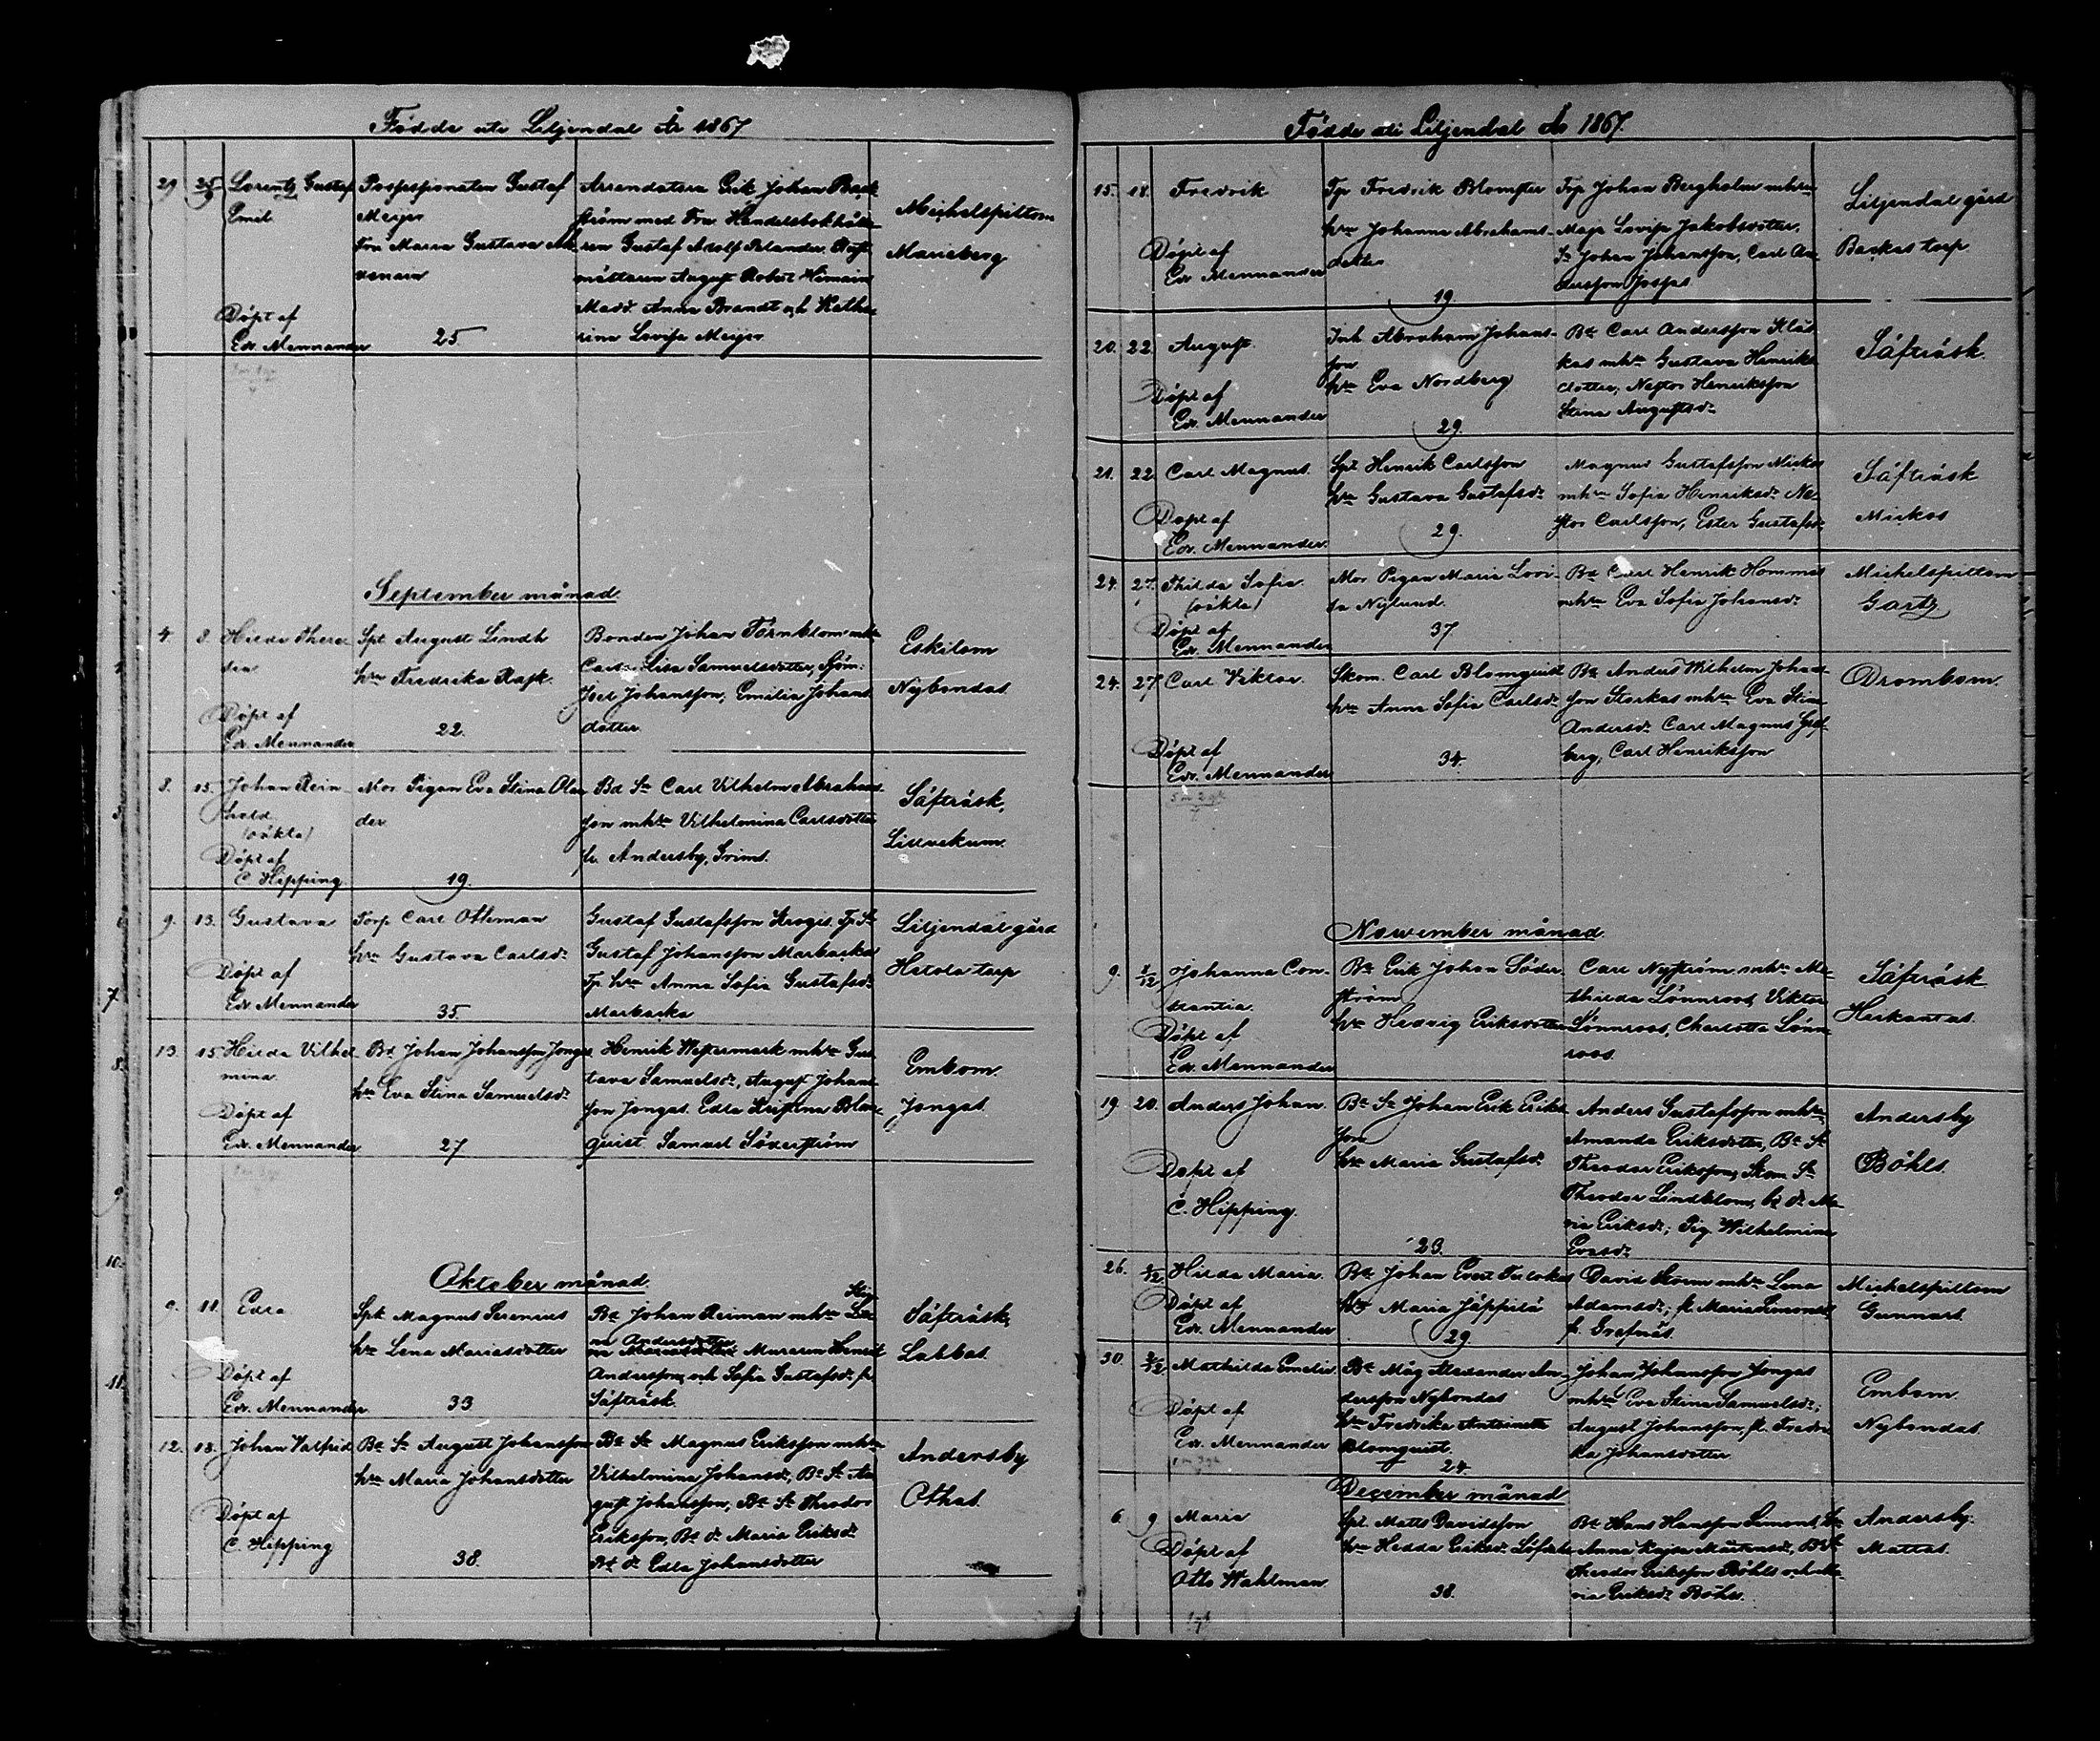 Födde uti Liljendal År 1867
29 25/9 Lorentz Gustaf Emil
Döpt af
Edv. Mennander
Possessionaten Gustaf
Meijer
Fru Maria Gustava
25
Arrendatorn Erik Johan Back
ström med Fru Handelsbokhålla
ren Gustaf Adolf Relander
mättaren August Robert
Anna Brandt och Katha
rina Lovisa Meijer
Michelspiltom
Marieberg
September månad
4. 8. Hilda There
sia
Döpt af
Edv. Mennander
Spt August Lindh
hru Fredrika Rask.
22.
Bonden Johan Törnblom mhru
Carolina Samuelsdotter,
Joel Johansson, Emilia Johans
dotter
Eskilom
Nybondas.
8. 15. Johan Rein
hold
(oäkta)
Döpt af
C. Hipping
Mor Pigan Eva Stina Olan
der
19.
Bd Sn Carl Vilhelm Abrahams
son mhru Vilhelmina Carlsdotter
fr. Andersby, Grims.
Säfträsk,
Lillrekum.
9. 13. Gustava
Döpt af
Edv. Mennander
Torp Carl Othman
hru Gustava Carlsdr
35.
Gustaf Gustafsson Tp Sn
Gustaf Johansson Marbacka
Tp hru Anna Sofia Gustafsdr
Marbacka
Liljendal gård
torp
13. 15. Hilda Vilhel
mina.
Döpt af
Edv. Mennander
Bd Johan Johansson Jongas
hru Eva Stina Samuelsdr
27
Henrik Westermark mhru Gus
tava Samuelsdr, August Johans
son Jongas. Edla Kristina Blom
quist. Samuel Söderström
Embom.
Jongas.
Oktober månad
9. 11. Edla
Döpt af
Edv. Mennander
Spt Magnus Serenius
hru Lena Mariasdotter
33
Bd Johan Reiman mhru
Andersdotter Muraren Henrik
Andersson, och Sofia Gustafsdr fr.
Säfträsk.
Säfträsk,
Labbas.
12. 13. Johan Valfrid
Döpt af
C. Hipping
Bd Sn August Johansson
hru Maria Johansdotter
38.
Bd Sn Magnus Eriksson mhru
Vilhelmina Johansdr, Bd Sn Au
gust Johansson, Bd Sn Theodor
Eriksson, Bd dr Maria Eriksdr
Bd dr Edla Johansdotter
Andersby
Othas.
Födde uti Liljendal År 1867.
15. 18. Fredrik
Döpt af
Edv. Mennander
Tp Fredrik Blomster
hru Johanna Abrahams-
dotter
19.
Torp Johan Bergholm mhru
Maja Lovisa Jakobsdotter,
Sn Johan Johansson, Carl An
dersson Josfas
Liljendal gård
Backas torp.
20. 22. August
Döpt af
Edv. Mennander
Inh. Abraham Johans-
son
hru Eva Nordberg
29.
Bd Carl Andersson Kläs
kas mhru Gustava Henriks
dotter, Nestor Henriksson
Stina Augustsdr
Säfträsk.
21. 22. Carl Magnus.
Döpt af
Edv. Mennander.
Spt Henrik Carlsson
hru Gustava Gustafsdr
29.
Magnus Gustafsson Mickos
mhru Sofia Henriksdr Ne
stor Carlsson, Ester Gustafsdr
Säfträsk
Mickos
24. 27. Thilda Sofia.
(oäkta)
Döpt af
Edv. Mennander
Mor Pigan Maria Lovi-
sa Nylund.
37
Bd Carl Henrik Hommas
mhru Eva Sofia Johansdr
Michelspiltom
Gartz
24. 27. Carl Viktor.
Döpt af
Edv. Mennander
Skom. Carl Blomquist
hru Anna Sofia Carlsdr
34.
Bd Anders Wilhelm Johans
son Storkas mhru Eva Stina
Andersdr Carl Magnus Graf
berg, Carl Henriksson
Drombom.
November månad.
9. 1/12 Johanna Con-
stantia.
Döpt af
Edv. Mennander
Bd Erik Johan Söder
ström
hru Hedvig Eriksdotter
Carl Nyström mhru Ma
thilda Lönnroos, Viktor
Lönnroos, Charlotta Lönn
roos.
Säfträsk
Herkantas.
19. 20. Anders Johan.
Döpt af
C. Hipping.
Bd Sn Johan Erik Eriks
son
hru Maria Gustafsdr
23.
Anders Gustafsson mhru
Amanda Eriksdotter, Bd Sn
Theodor Eriksson, Skom Sn
Theodor Lindblom, bd dr Ma
ria Eriksdr; Pig Wilhelmina
Evasdr
Andersby
Böhls.
26. 2/12 Hilda Maria.
Döpt af
Edv. Mennander
Bd Johan Evert
hru Maria Jäppilä
29.
David Storm mhru Lena
Adamsdr; fl. Maria Simonsdr
fr. Grafnäs.
Michelspiltom
Gunnars.
30. 3/12 Mathilda Emelie
Döpt af
Edv. Mennander
Bd Måg Alexander An
dersson Nybondas
hru Fredrika Antoinetta
Blomquist.
24.
Johan Johansson Jongas
mhru Eva Stina Samuelsdr;
August Johansson, fl. Fredri
ka Johansdotter
Embom.
Nybondas.
December månad
6. 9 Maria
Döpt af
Otto Wahlman
Spt. Matts Davidsson
hru Hedda Eriksdr
38.
Bd Hans Hansson Simons, hru
Anna Kajsa Mårtensdr, Bd Sn
Theodor Eriksson Böhls och Ma
ria Eriksdr Böhls.
Andersby.
Mattas.